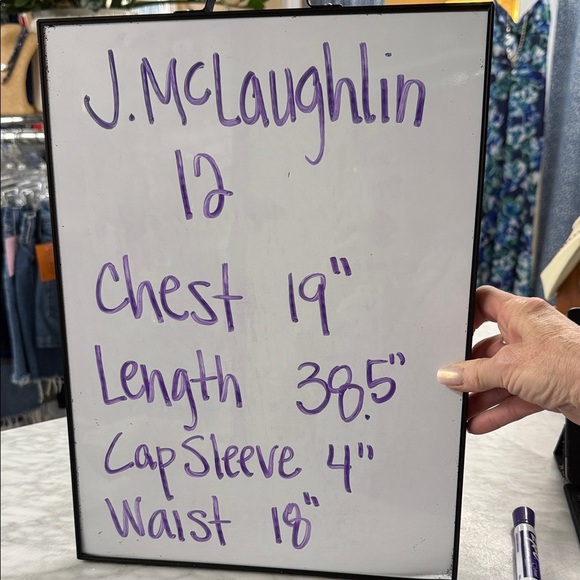 J.McLaughlin
12
Chest 19"
Length 38.5"
Cap Sleeve 4"
Waist 18"